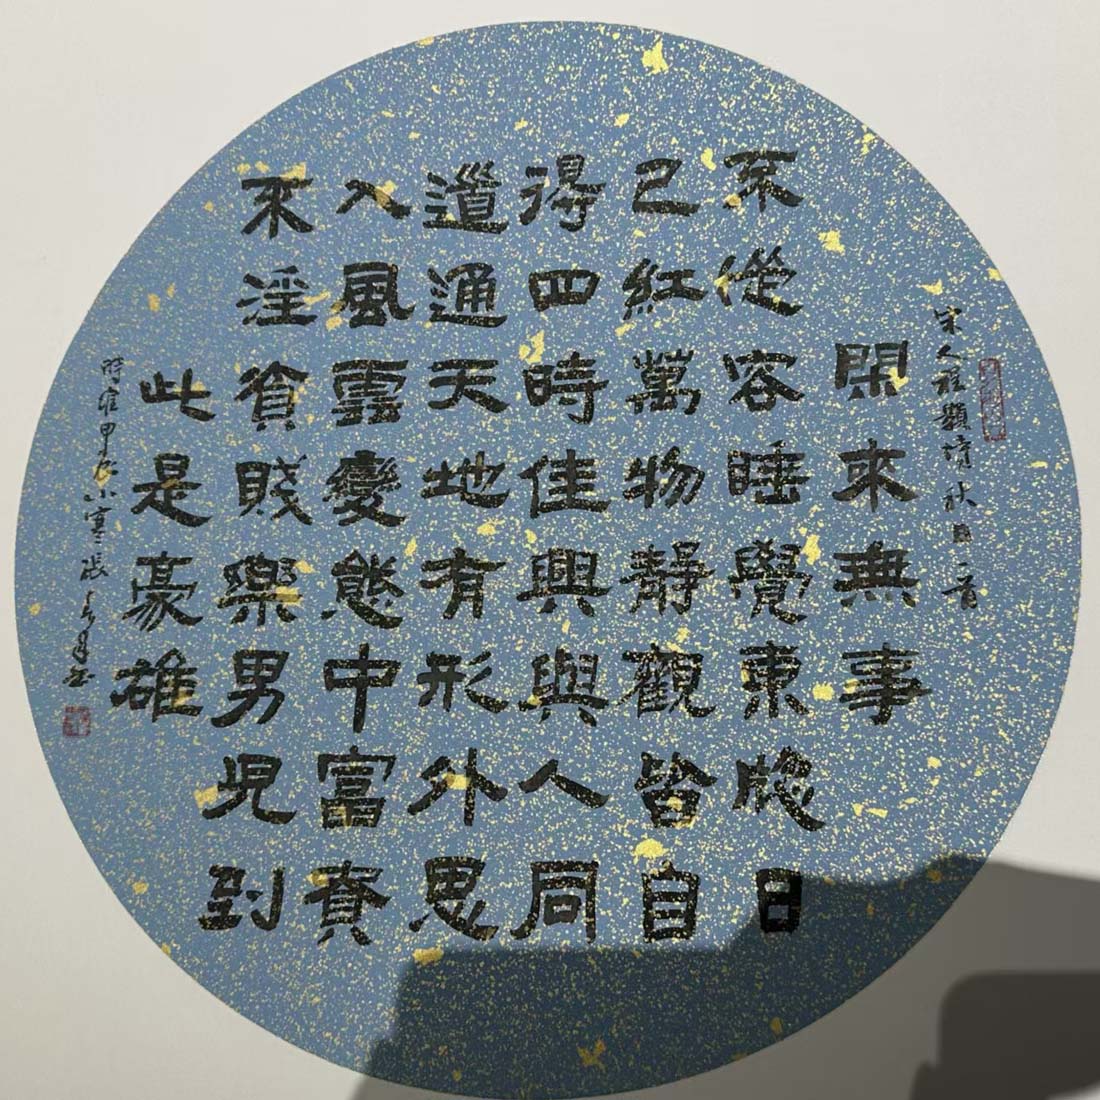 宋人程顥詩秋日一首
閑來無事
不從容睡覺東牕日
已紅萬物靜觀皆自
得四時佳興與人同
道通天地有形外思
入風雲變態中富貴
不淫貧賤樂男兒到
此是豪雄
時甲辰小寒張